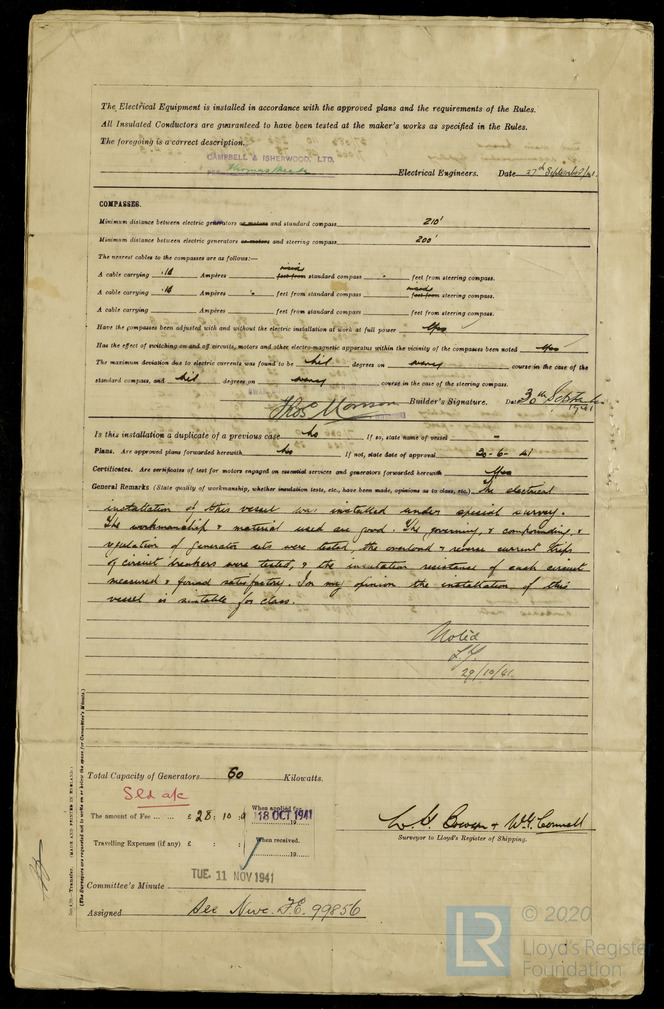 The Electrical Equipment is installed in accordance with the approved plans and the requirements of the Rules.
All Insulated Conductors are guaranteed to have been tested at the maker's works as specified in the Rules.
The foregoing is a correct description.
CAMPBELL & ISHERWOOD, LTD.
Electrical Engineers. Date 27th September/41.
COMPASSES.
Minimum distance between electric generators or motors and standard compass 210'
Minimum distance between electric generators or motors and steering compass 200'
The nearest cables to the compasses are as follows:—
A cable carrying .14 Ampères inside feet from standard compass feet from steering compass.
A cable carrying .14 Ampères feet from standard compass inside feet from steering compass.
A cable carrying Ampères feet from standard compass feet from steering compass.
Have the compasses been adjusted with and without the electric installation at work at full power Yes
Has the effect of switching on and off circuits, motors and other electro-magnetic apparatus within the vicinity of the compasses been noted Yes
The maximum deviation due to electric currents was found to be Nil degrees on every course in the case of the
standard compass, and Nil degrees on every course in the case of the steering compass.
Builder's Signature. Date 30th 1941
Is this installation a duplicate of a previous case No If so, state name of vessel -
Plans. Are approved plans forwarded herewith No If not, state date of approval 20-6-41
Certificates. Are certificates of test for motors engaged on essential services and generators forwarded herewith Yes
General Remarks (State quality of workmanship, whether insulation tests, etc., have been made, opinions as to class, etc.) The electrical
installation of this vessel was installed under special survey.
The workmanship & material used are good. The governing, & compounding, &
regulation of generator sets were tested, the overload & reverse current trips
of circuit breakers were tested, & the insulation resistance of each circuit
measured & found satisfactory. In my opinion the installation of this
vessel is suitable for class.
Noted
29/10/41.
Total Capacity of Generators 60 Kilowatts.
Sld a/c
The amount of Fee ... ... £ 28 : 10 : 0 When applied for, 18 OCT 1941
19
Travelling Expenses (if any) £ : : When received.
19
Surveyor to Lloyd's Register of Shipping.
TUE. 11 NOV 1941
Committee's Minute
Assigned See Nwc. F.E. 99856
(MADE AND PRINTED IN ENGLAND.)
(The Surveyors are requested not to write on or below the space for Committee's Minute.)
LR
© 2020
Lloyd's Register
Foundation